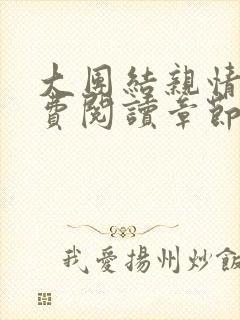 大團結親情
費閱讀章節
我愛揚州炒飯